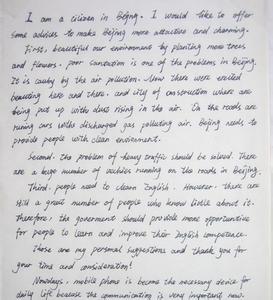 I am a citizen in Beijing. I would like to offer
some advices to make Beijing more attractive and charming.
First, beautiful our environment by planting more trees
and flowers. poor sanitation is one of the problems in Beijing.
It is by the air pollution. Now there were erected
beauting here and there. and city of construction where are
being put up with dust rising in the air. On the roads are
runing cars with discharged gas polluting air. Beijing needs to
provide people with clean enviroment.
Second. the problem of heavy traffic should be solved. There
are a huge number of vechies running on the roads in Beijing.
Third, people need to learn English. However, there are
still a great number of people who know little about it.
therefore, the government should provide more opportunities
for people to learn and improve their English competence.
Those are my personal suggestions and thank you for
your time and consideration!
Nowdays, mobile phone is become the necessary device for
daily life because the communication is very important now.